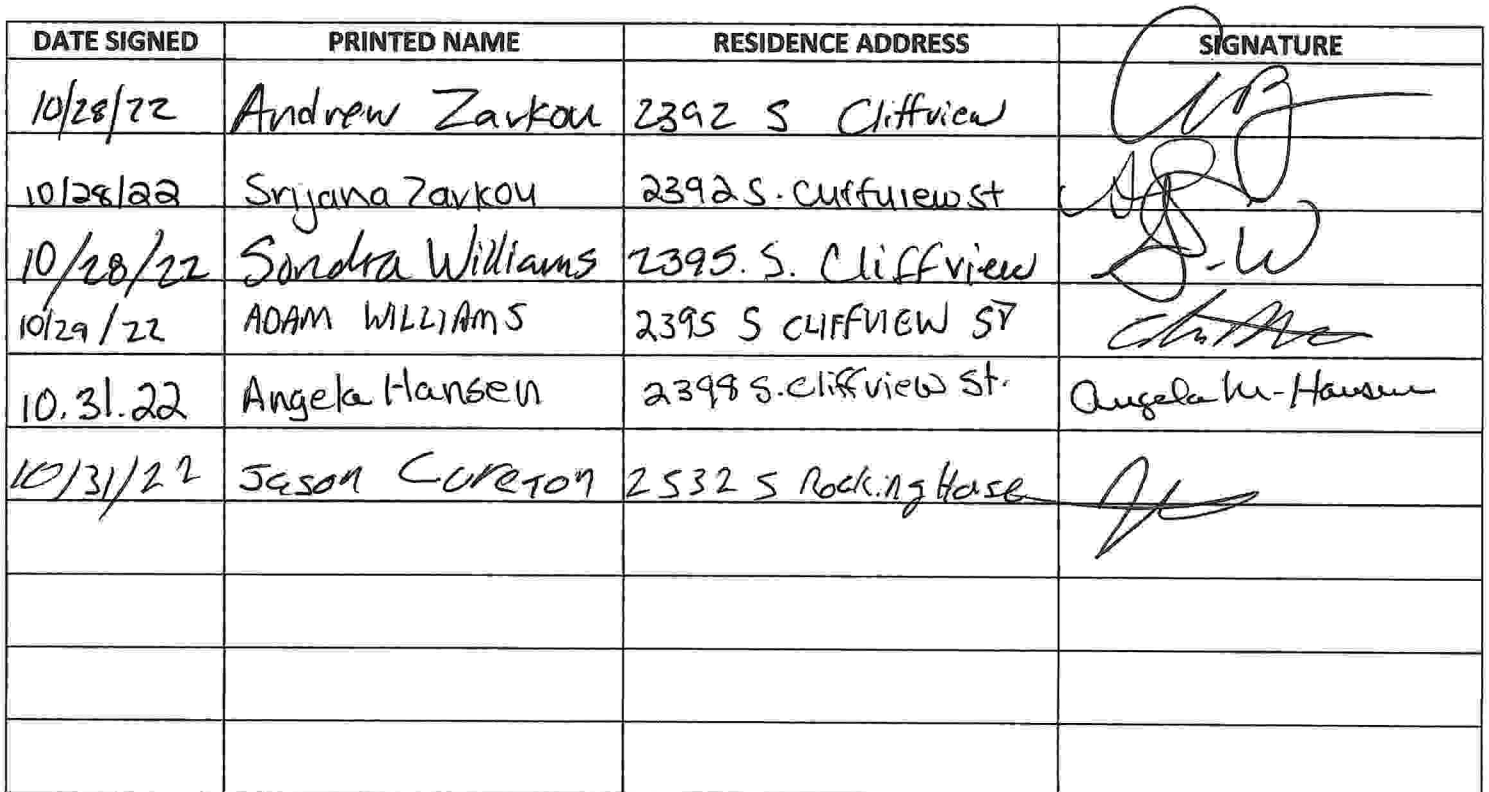 DATE SIGNED PRINTED NAME RESIDENCE ADDRESS SIGNATURE
10/28/22 Andrew Zavkou 2392 S Cliffview
10/28/22 Srijana Zavkou 2392 S. Cliffview st
10/28/22 Sondra Williams 2395. S. Cliffview S-W
10/29/22 ADAM WILLIAMS 2395 S CLIFFVIEW ST
10.31.22 Angela Hansen 2398 S. Cliffview St. Angela M-Hansen
10/31/22 Jason Cureton 2532 S Rocking Horse